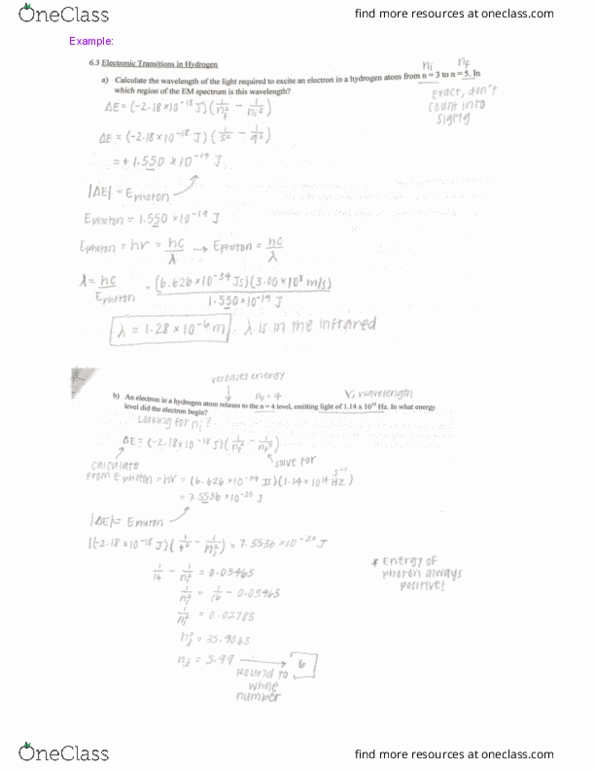 OneClass
find more resources at oneclass.com
Example:
6.3 Electronic Transitions in Hydrogen
nᵢ n_f
a) Calculate the wavelength of the light required to excite an electron in a hydrogen atom from n = 3 to n = 5. In
which region of the EM spectrum is this wavelength?
exact, don't
count into
sigfig
ΔE = (-2.18×10⁻¹⁸ J)(1/n_f² - 1/nᵢ²)
ΔE = (-2.18×10⁻¹⁸ J)(1/5² - 1/9²)
= +1.550 × 10⁻¹⁹ J
|ΔE| = Ephoton
Ephoton = 1.550 × 10⁻¹⁹ J
Ephoton = hν = hc/λ → Ephoton = hc/λ
λ = hc/Ephoton = (6.626×10⁻³⁴ Js)(3.00×10⁸ m/s)/1.550×10⁻¹⁹ J
λ = 1.28 × 10⁻⁶ m . λ is in the infrared
releases energy
nf = 4
wavelength
b) An electron in a hydrogen atom relaxes to the n = 4 level, emitting light of 1.14 x 10¹⁴ Hz. In what energy
level did the electron begin?
looking for nᵢ?
ΔE = (-2.18×10⁻¹⁸ J)(1/n_f² - 1/nᵢ²)
solve for
calculate
from Ephoton = hν = (6.626 ×10⁻³⁴ Js)(1.14× 10¹⁴ Hz)
s⁻¹
= 7.5536 ×10⁻²⁰ J
|ΔE| = Ephoton
|(-2.18×10⁻¹⁸ J)(1/4² - 1/nᵢ²)| = 7.5536 ×10⁻²⁰ J
1/16 - 1/nᵢ² = 0.03465
1/nᵢ² = 1/16 - 0.03465
1/nᵢ² = 0.02785
nᵢ² = 35.9065
nᵢ = 5.99 → 6
Round to
whole
number
* Energy of
photon always
positive!
OneClass
find more resources at oneclass.com